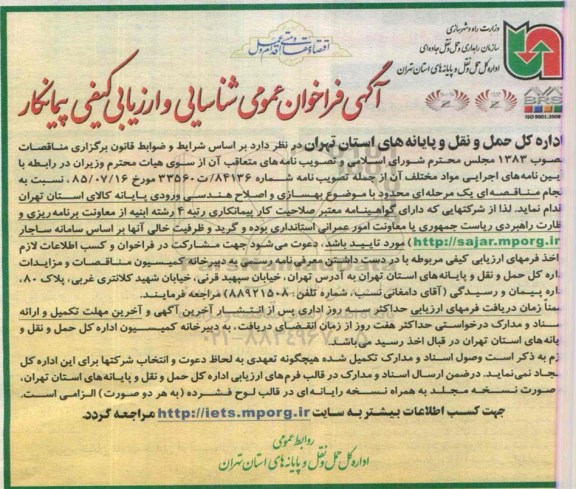 اقتصاد مقاومتی اقدام و عمل
وزارت راه و شهرسازی
سازمان راهداری و حمل و نقل جاده‌ای
اداره کل حمل و نقل و پایانه های استان تهران
BRS
ISO 9001:2008
آگهی فراخوان عمومی شناسایی و ارزیابی کیفی پیمانکار
اداره کل حمل و نقل و پایانه های استان تهران در نظر دارد بر اساس شرایط و ضوابط قانون برگزاری مناقصات
صوب ۱۳۸۳ مجلس محترم شورای اسلامی و تصویب نامه های متعاقب آن از سوی هیات محترم وزیران در رابطه با
یین نامه‌های اجرایی مواد مختلف آن از جمله تصویب نامه شماره ۸۴۱۳۶/ت۳۳۵۶۰ مورخ ۸۵/۰۷/۱۶، نسبت به
جام مناقصه‌ای یک مرحله‌ای محدود با موضوع بهسازی و اصلاح هندسی ورودی پایانه کالای استان تهران
قدام نماید. لذا از شرکتهایی که دارای گواهینامه معتبر صلاحیت کار پیمانکاری رتبه ۴ رشته ابنیه از معاونت برنامه‌ریزی و
ظارت راهبردی ریاست جمهوری یا معاونت امور عمرانی استانداری بوده و گرید و ظرفیت خالی آنها بر اساس سامانه ساجار
(http://sajar.mporg.ir) مورد تایید باشد، دعوت می شود جهت مشارکت در فراخوان و کسب اطلاعات لازم
اخذ فرمهای ارزیابی کیفی مربوطه با در دست داشتن معرفی نامه رسمی به دبیرخانه کمیسیون مناقصات و مزایدات
داره کل حمل و نقل و پایانه‌های استان تهران به آدرس تهران، خیابان سپهبد قرنی، خیابان شهید کلانتری غربی، پلاک ۸۰،
داره پیمان و رسیدگی (آقای دامغانی نسب، شماره تلفن: ۸۸۹۲۱۵۰۸) مراجعه فرمایند.
ضمنا زمان دریافت فرمهای ارزیابی حداکثر سه روز اداری پس از انتشار آخرین آگهی و آخرین مهلت تکمیل و ارائه
سناد و مدارک درخواستی حداکثر هفت روز از زمان انقضای دریافت، به دبیرخانه کمیسیون اداره کل حمل و نقل و
پایانه های استان تهران در قبال اخذ رسید می باشد.
زم به ذکر است وصول اسناد و مدارک تکمیل شده هیچگونه تعهدی به لحاظ دعوت و انتخاب شرکتها برای این اداره کل
یجاد نمی‌نماید. درضمن ارسال اسناد و مدارک در قالب فرم‌های ارزیابی اداره کل حمل و نقل و پایانه‌های استان تهران،
صورت نسخه مجلد به همراه نسخه رایانه‌ای در قالب لوح فشرده (به هر دو صورت) الزامی است.
جهت کسب اطلاعات بیشتر به سایت http://iets.mporg.ir مراجعه گردد.
روابط عمومی
اداره کل حمل و نقل و پایانه های استان تهران